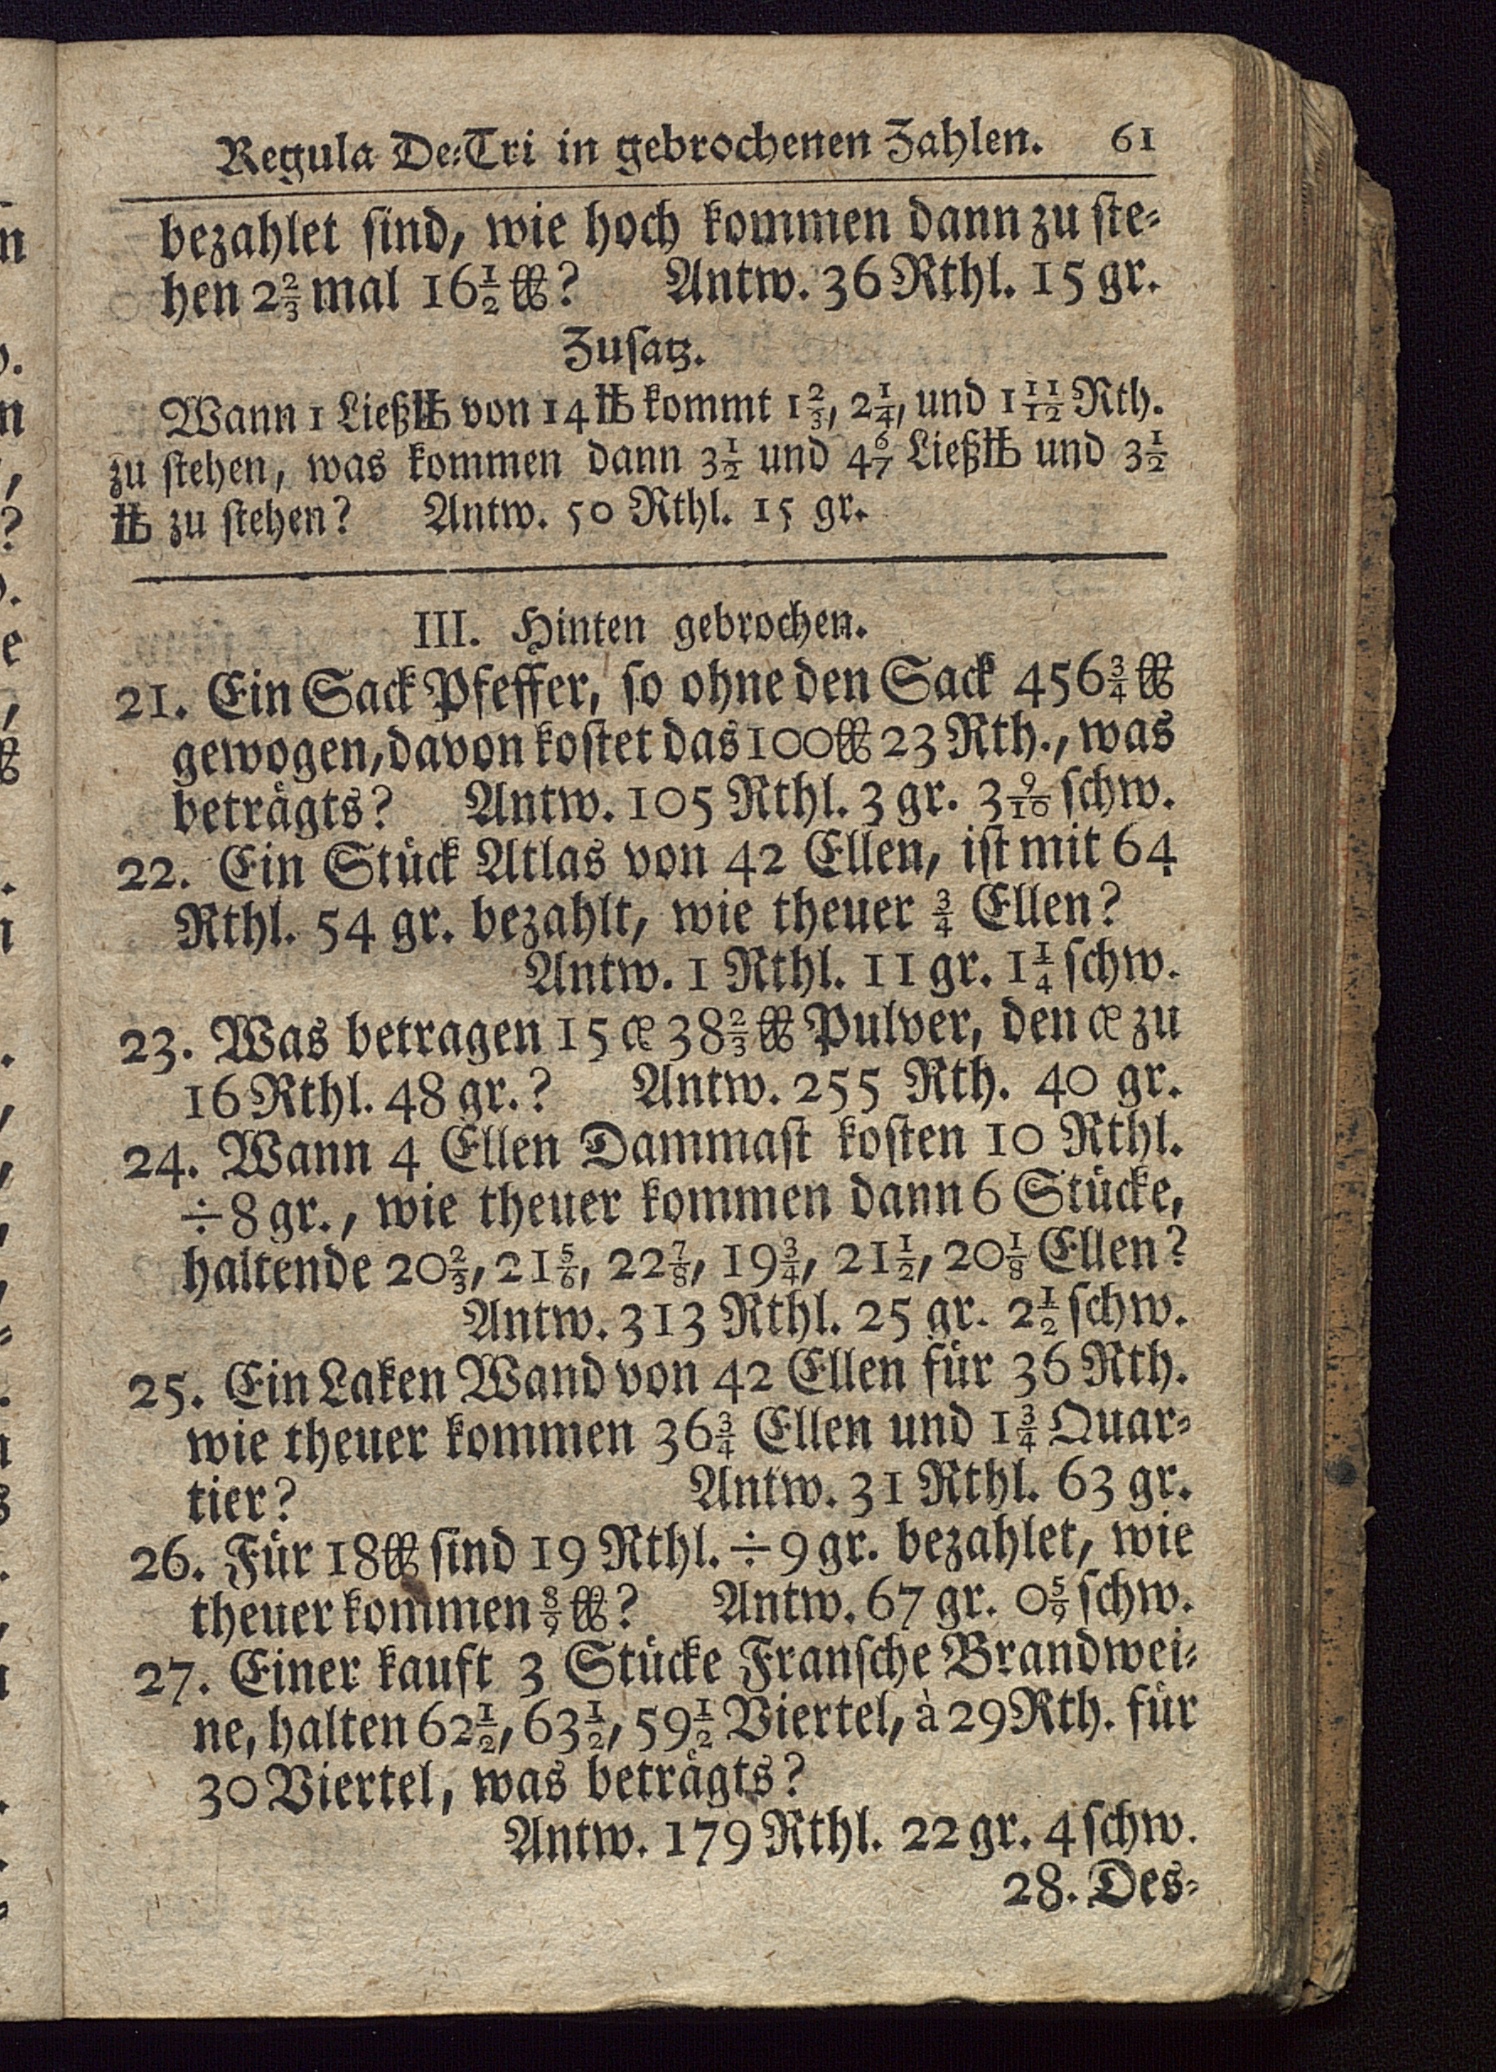 Regula De=Tri in gebrochenen Zahlen. 61
bezahlet sind, wie hoch kommen dann zu ste=
hen 2 2/3 mal 16 1/2 ℔? Antw. 36 Rthl. 15 gr.
Zusatz.
Wann 1 Ließ℔ von 14 ℔ kommt 1 2/3, 2 1/4, und 1 11/12 Rth.
zu stehen, was kommen dann 3 1/2 und 4 6/7 Ließ℔ und 3 1/2
℔ zu stehen? Antw. 50 Rthl. 15 gr.
III. Hinten gebrochen.
21. Ein Sack Pfeffer, so ohne den Sack 456 3/4 ℔
gewogen, davon kostet das 100 ℔ 23 Rth., was
beträgts? Antw. 105 Rthl. 3 gr. 3 9/10 schw.
22. Ein Stück Atlas von 42 Ellen, ist mit 64
Rthl. 54 gr. bezahlt, wie theuer 3/4 Ellen?
Antw. 1 Rthl. 11 gr. 1 1/4 schw.
23. Was betragen 15 œ 38 2/3 ℔ Pulver, den œ zu
16 Rthl. 48 gr.? Antw. 255 Rth. 40 gr.
24. Wann 4 Ellen Dammast kosten 10 Rthl.
÷ 8 gr., wie theuer kommen dann 6 Stücke,
haltende 20 2/3, 21 5/6, 22 7/8, 19 3/4, 21 1/2, 20 1/8 Ellen?
Antw. 313 Rthl. 25 gr. 2 1/2 schw.
25. Ein Laken Wand von 42 Ellen für 36 Rth.
wie theuer kommen 36 3/4 Ellen und 1 3/4 Quar=
tier? Antw. 31 Rthl. 63 gr.
26. Für 18 ℔ sind 19 Rthl. ÷ 9 gr. bezahlet, wie
theuer kommen 8/9 ℔? Antw. 67 gr. 0 5/9 schw.
27. Einer kauft 3 Stücke Fransche Brandwei=
ne, halten 62 1/2, 63 1/2, 59 1/2 Viertel, à 29 Rth. für
30 Viertel, was beträgts?
Antw. 179 Rthl. 22 gr. 4 schw.
28. Des=